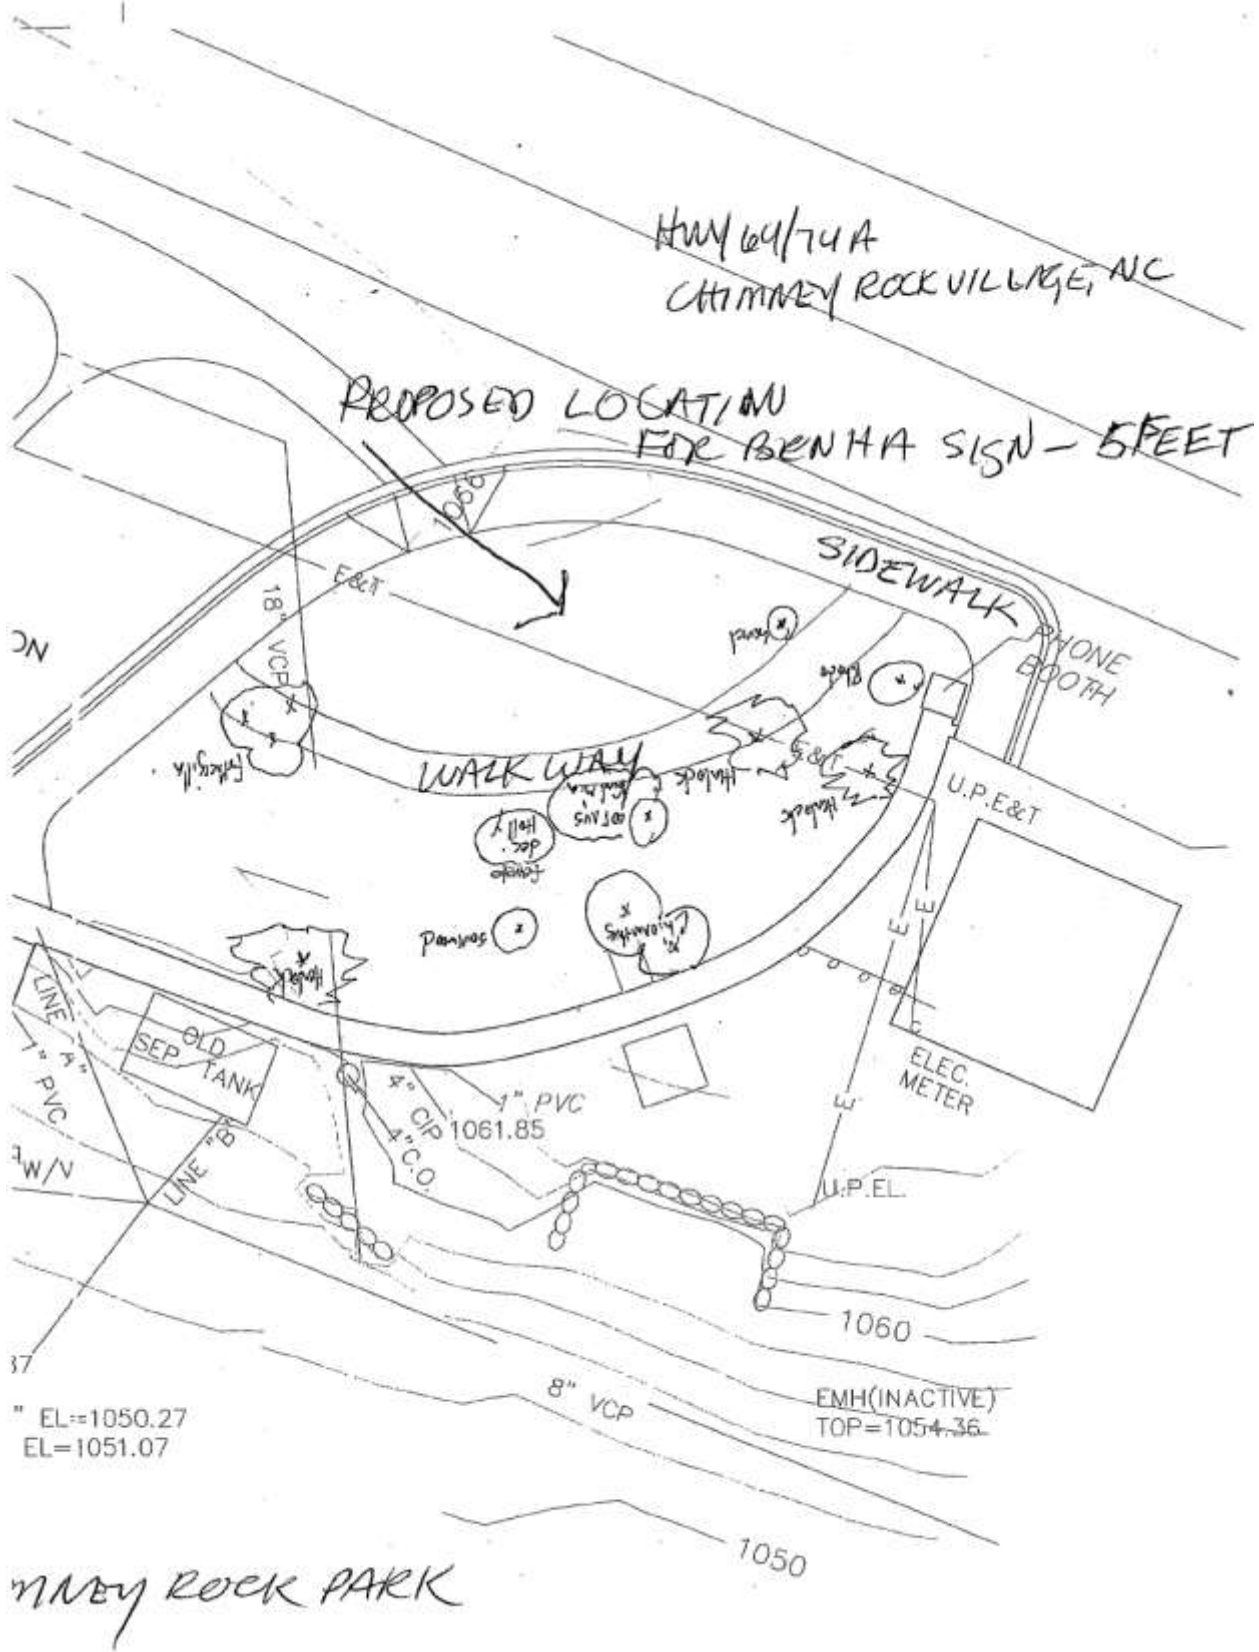 HWY 64/74A
CHIMNEY ROCK VILLAGE, NC
PROPOSED LOCATION
FOR BRNHA SIGN - 5 FEET
1066
SIDEWALK
E&T
18" VCP
NC
PHONE
BOOTH
Rhodo
Fothergilla
WALKWAY
Hemlock
E&T
Hemlock
U.P.E&T
female
dec.
Holly
Sourwood
Chionanthus
Hemlock
E
E
E
ELEC.
METER
LINE "A"
1" PVC
OLD
SEP TANK
LINE "B"
4" CIP
4" C.O.
1" PVC
1061.85
W/V
U.P.EL.
1060
37
" EL=1050.27
EL=1051.07
8" VCP
EMH(INACTIVE)
TOP=1054.36
1050
MNEY ROCK PARK